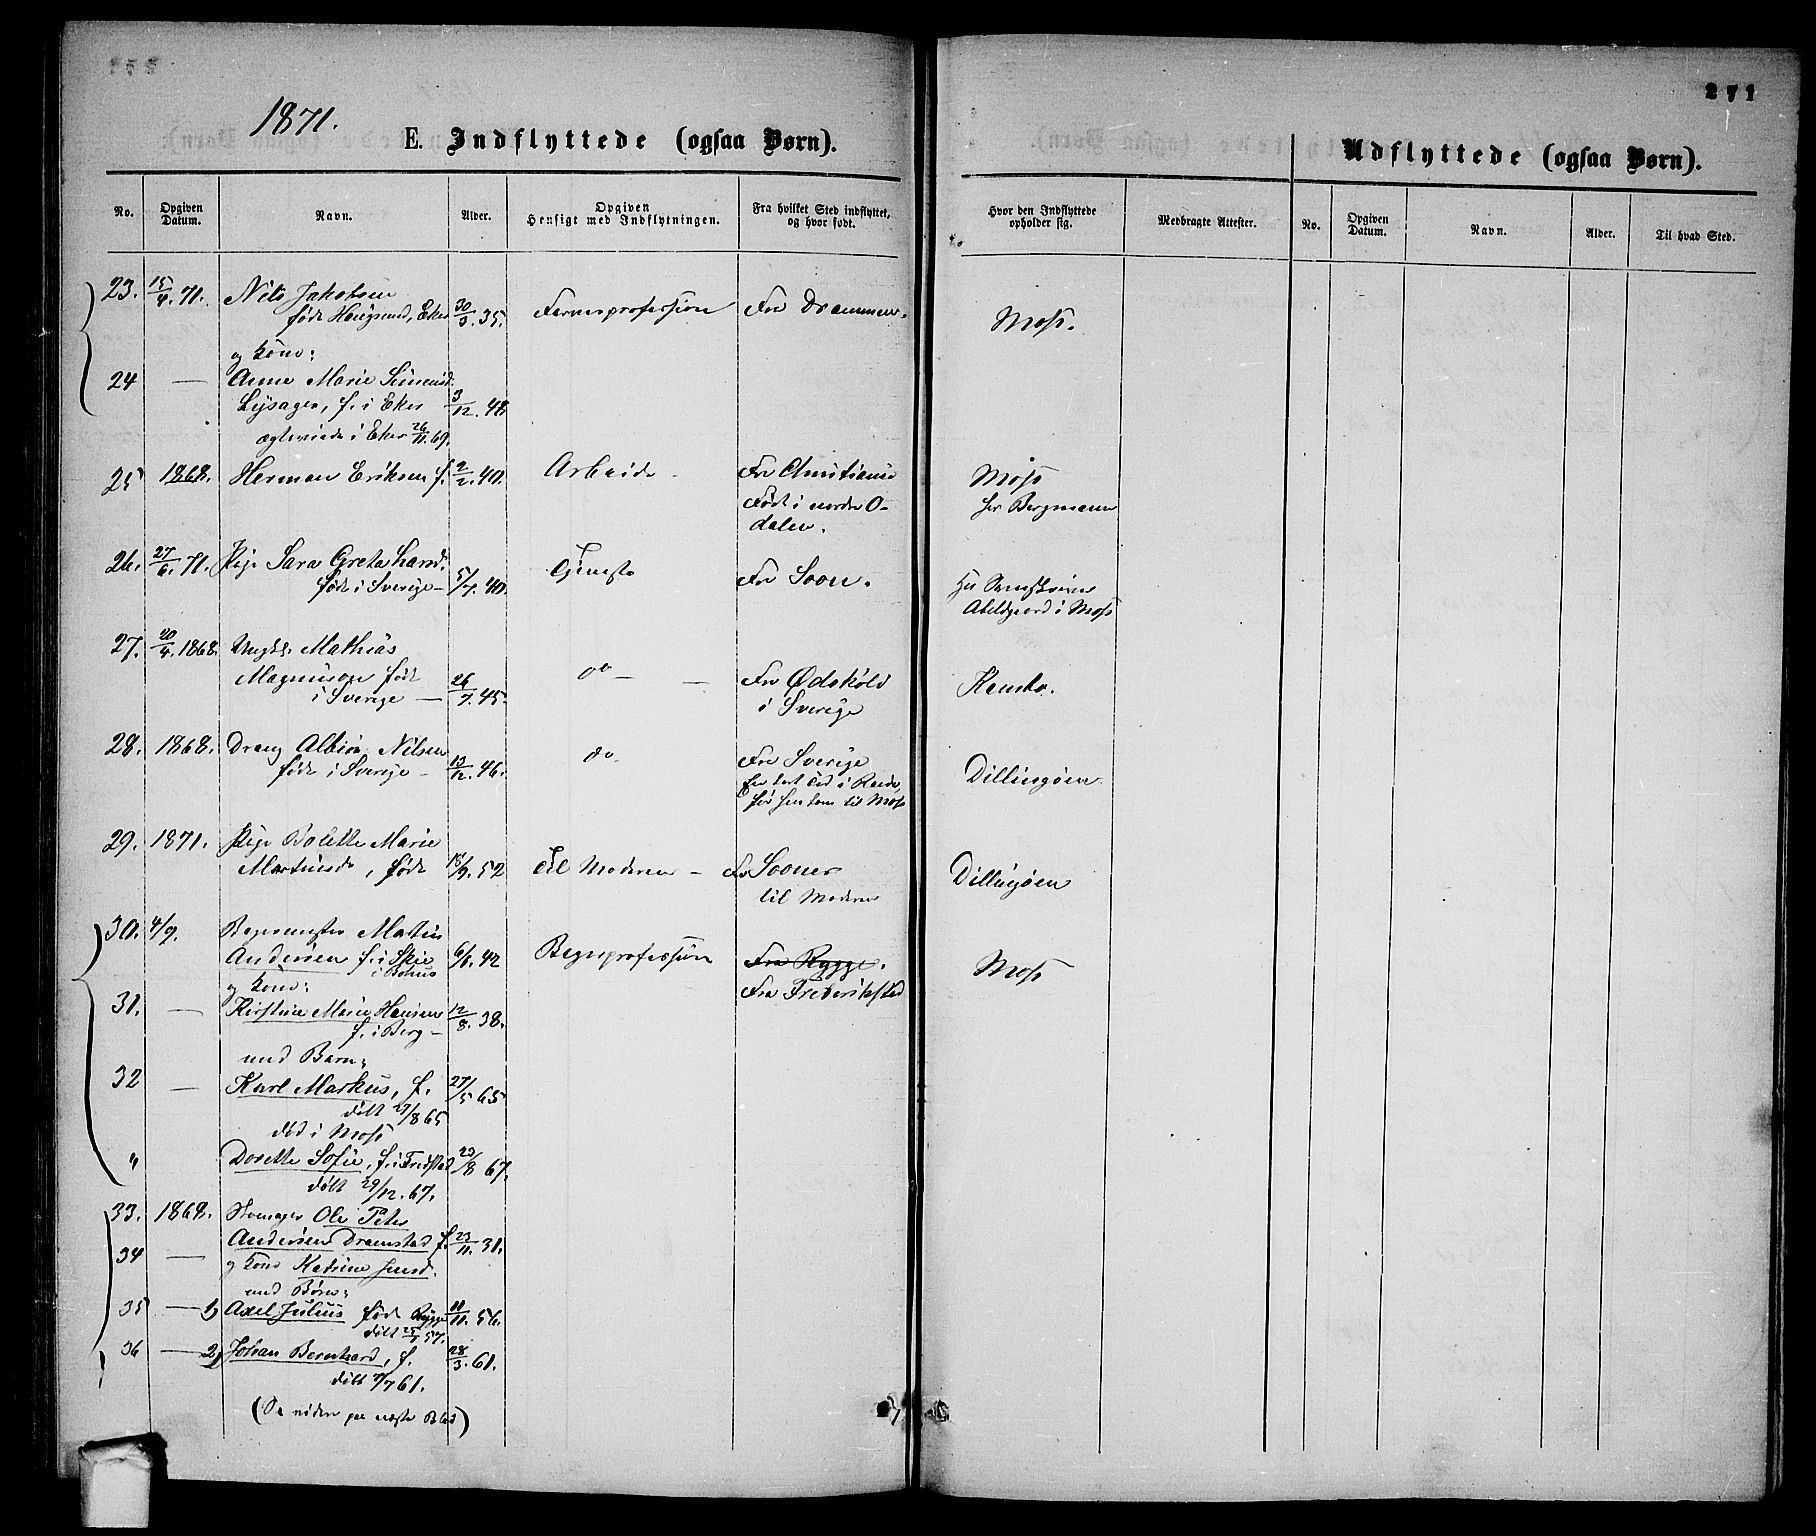 271
1871.
E. Indflyttede (ogsaa Børn).
Udflyttede (ogsaa Børn).
No. Opgiven Datum. Navn. Alder. Opgiven Hensigt med Indflytningen. Fra hvilket Sted indflyttet, og hvor født. Hvor den Indflyttede opholder sig. Medbragte Attester. No. Opgiven Datum. Navn. Alder. Til hvad Sted.
23. 15/4. 71. Nils Jakobsen
født Hougsund, Eker 30/3. 35. Farverprofession Fra Drammen. Moss.
og Kone:
24 — Anne Marie Simensd.
Lysager, f. i Eker 3/12. 48
ægteviede i Eker 26/11. 69.
25 1868. Herman Eriksen f. 2/2. 40. Arbeide Fra Christiania Moss
Født i nordre O- hos Bergmann
dalen.
26. 27/6. 71. Pige Sara Greta Larsd.
født i Sverige — 5/7. 40. Tjeneste Fra Soon. Hos
Abildgaard i Moss
27. 20/4. 1868. Ungk. Mathias
Magnuson født
i Sverige — 26/7. 45. do — — Fra Ødskôld
i Sverige Kambo.
28. 1868. Dreng Albin Nilsen
født i Sverige — 13/12. 46. do Fra Sverige
Dillingøen
før han kom til Moss
29. 1871. Pige Bolette Marie
Martinsd., født 18/9. 52 til Moderen — Fra Sooner Dillingøen
til Moderen
30. 4/9. Bagermester Martin
Andersen f. i Skie 6/6. 42 Bagerprofession Fra Rygge. Moss
i Bohus
og Kone: Fra Frederikstad
31. — Kirstine Marie Hansen 12/8. 38.
f. i Berg —
med Barn:
32 — Karl Markus, f. 27/5 65
døbt 27/8 65
død i Moss
" Dorette Sofie, f. i Fredstad 23/8 67.
døbt 29/12. 67.
33. 1868. Ole Peter
Andersen Dramstad f. 23/11. 31.
34 — og Kone Katrine Jensd.
med Børn:
35 — 1) Axel Julius født Rygge 11/11. 56.
døbt 25/1 57.
36 — 2) Johan Bernhard, f. 28/3. 61.
døbt 7/7 61.
(Se siden paa næste Blad)